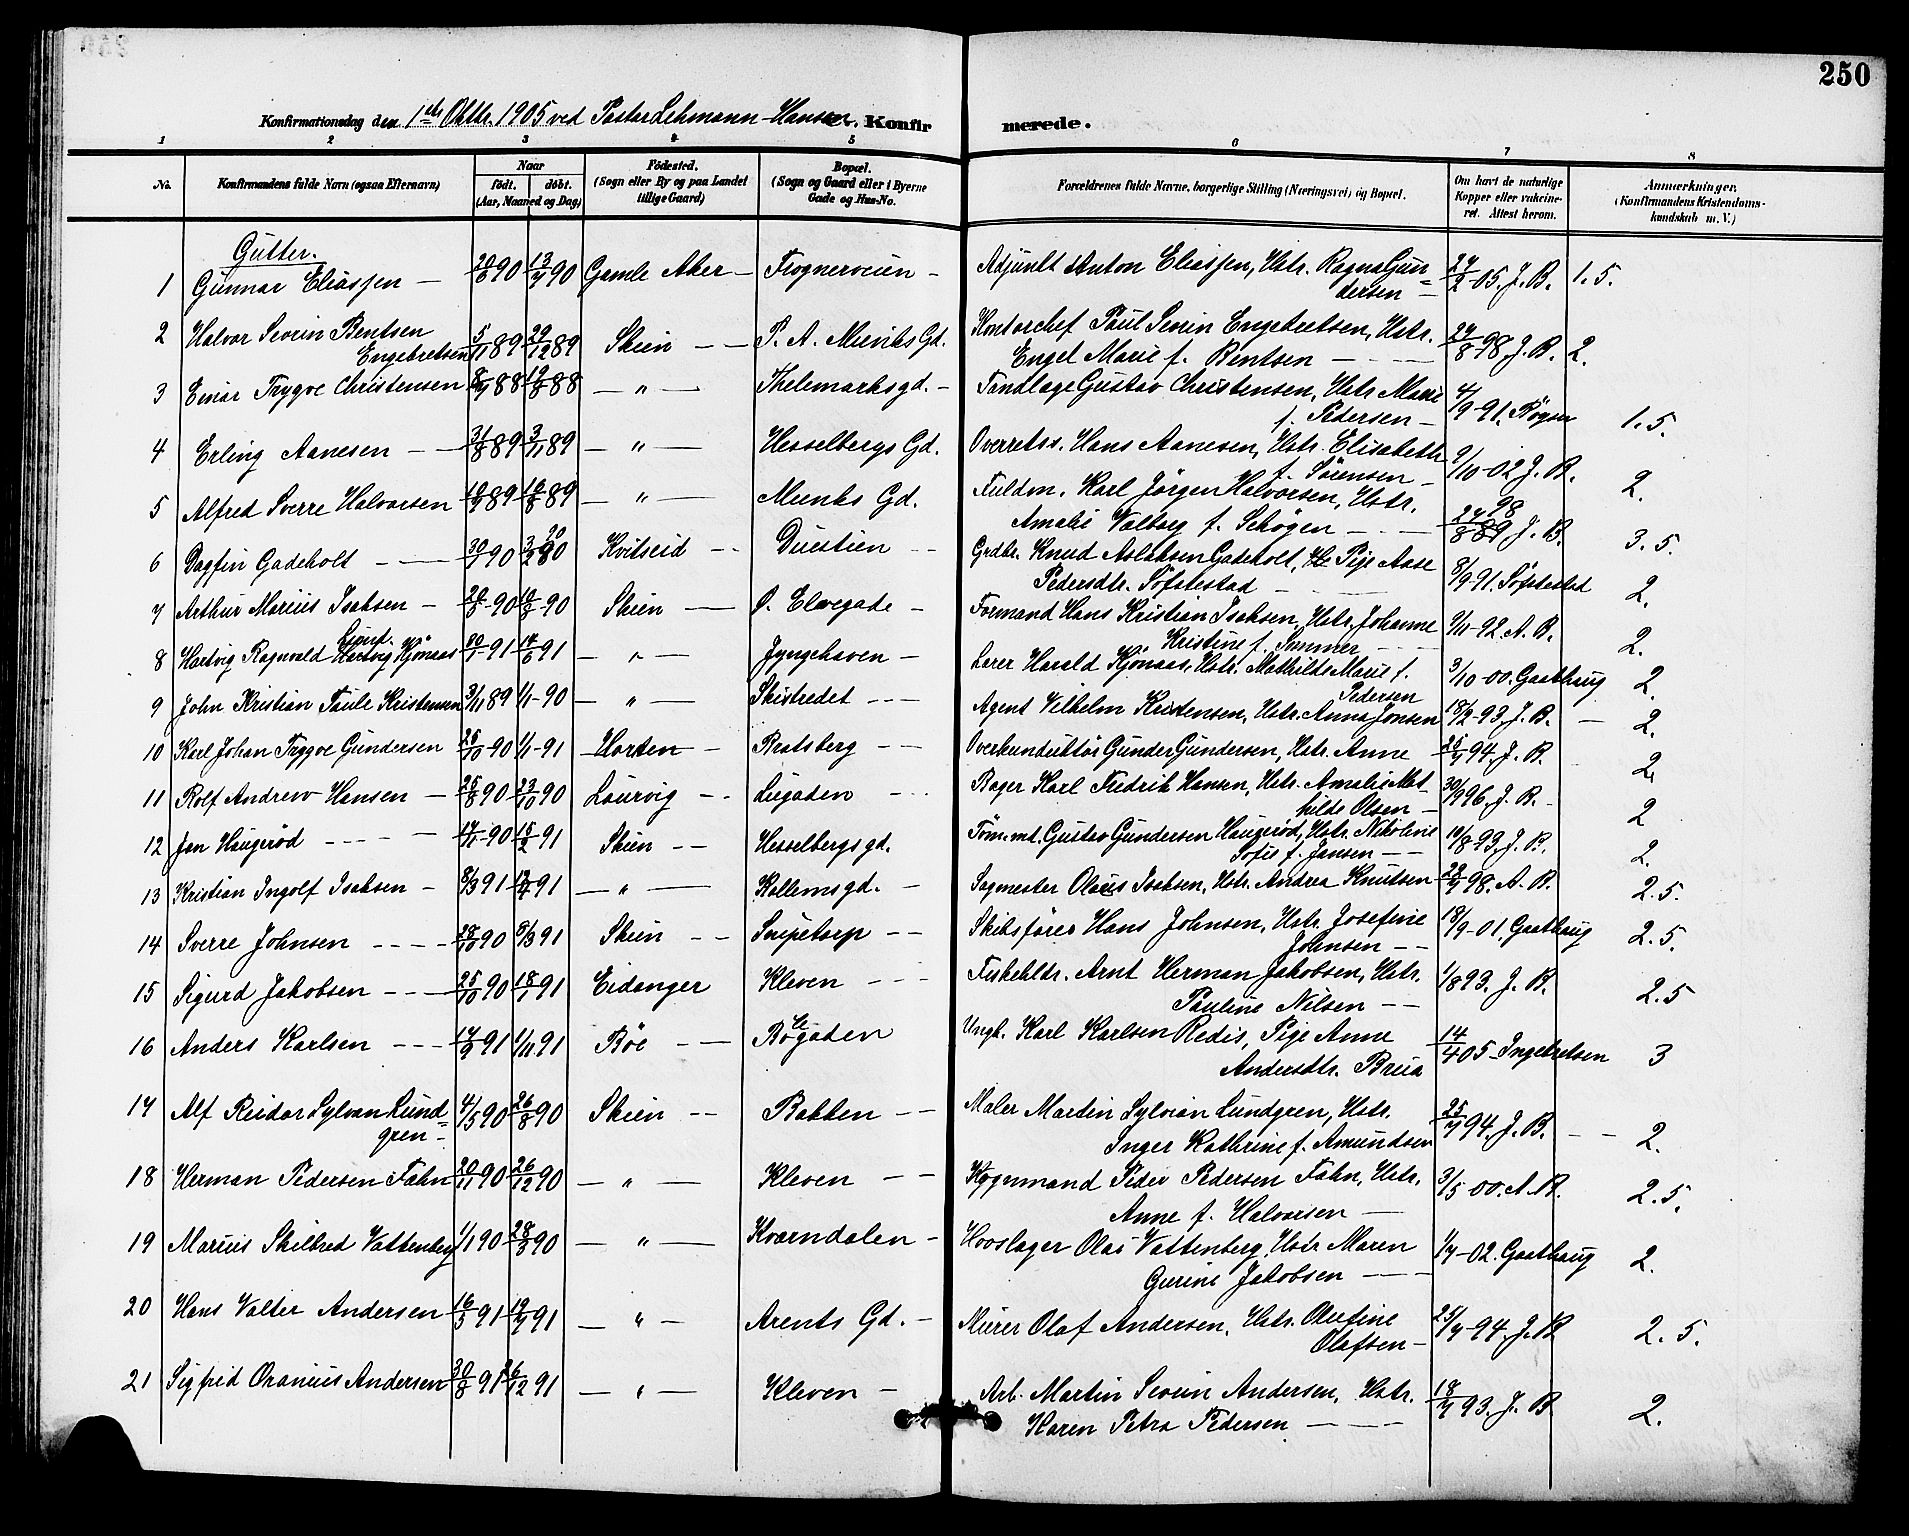 250
Konfirmationsdag den 1ste Oktbr. 1905 ved Pastor Lehmann-Hansen. Konfirmerede.
1 2 3 4 5 6 7 8
No. Konfirmandens fulde Navn (ogsaa Efternavn) Naar født. døbt. (Aar, Maaned og Dag) Fødested. (Sogn eller By og paa Landet tillige Gaard) Bopæl. (Sogn og Gaard eller i Byerne Gade og Hus-No. Forældrenes fulde Navne, borgerlige Stilling (Næringsvei) og Bopæl. Om havt de naturlige Kopper eller vakcineret. Attest herom. Anmærkninger. (Konfirmandens Kristendomskundskab m. V.)
Gutter.
1 Gunnar Eliassen — 20/6 90 13/7 90 Gamle Aker — Frognerveien — Adjunkt Anton Eliassen, Hstr. Ragna Gundersen — 24/2-05. J. B. 1.5.
2 Halvor Severin Bentsen Engebretsen 5/11 89 29/12 89 Skien — P. A. Munks Gd. Kontorchef Paul Severin Engebretsen, Hstr. Engel Marie f. Bentsen — 24/8 98 J. B. 2.
3 Einar Trygve Christensen 8/7 88 19/8 88 — " — Thelemarksgd. — Tandlæge Gustav Christensen, Hstr Marie f. Pedersen — 4/9-91. 1.5.
4 Erling Aanesen — 31/8 89 3/11 89 — " — Hesselbergs Gd. Overretss. Hans Aanesen, Hstr. Elisabeth f. Sørensen — 9/10-02 J. B. 2.
5 Alfred Sverre Halvorsen 89 89 — " — Munks Gd. Fuldm. Karl Jørgen Halvorsen, Hstr. Amalie Valborg f. Schøgen — 24/8 98 J. B. 3.5.
6 Dagfin Gadeholt — 30/7 90 90 Kvitseid — Duestien — Grdbr. Knud Aslaksen Gadeholt, Pige Aase Pedersdtr. Søftestad — 8/9-91. Søftestad 2.
7 Arthur Marius Isaksen — 20/6-90 10/8-90 Skien — Ø. Elvegade — Formand Hans Kristian Isaksen, Hstr. Johanne Kristine f. — 9/11-92. A. B. 2.
8 Hartvig Ragnvald Lund. Hartvig Kjönaas 91 14/6 91 — " — Jyngehaven — Lærer Harald Kjönaas, Hstr. Mathilde Marie f. Pedersen 3/10-00. Gaathaug 2.
9 John Kristian Paule Kristensen 3/11 89 1/1-90 — " — Skistredet — Agent Vilhelm Kristensen, Hstr. Anna Jonsen 18/2-93. J. B. — 2.
10 Karl Johan Trygve Gundersen 26/10 90 1/1-91 Horten — Bratsberg — Overkonduktør Gunder Gundersen, Hstr. Anne 25/7 94. J. B. 2.
11 Rolf Andrew Hansen — 25/8 90 23/10 90 Laurvig — Liegaden — Bager Karl Fredrik Hansen, Hstr. Amalie Mathilde Olsen — 30/9 96. J. B. — 2
12 Jan Haugerød — 17/11-90 15/2 91 Skien — Hesselbergsgd. Tøm.md. Gustav Gundersen Haugerød, Hstr. Nikoline Sofie f. Jansen — 10/8 93. J. B. 2.
13 Kristian Ingolf Isaksen — 8/3 91 91 — " — Kollemsgd. — Sagmester Olaus Isaksen, Hstr. Andrea Knutsen 98. A. B. 2.5.
14 Sverre Johnsen — 28/10 90 8/3 91 Skien — Snipetorp — Skibsfører Hans Johnsen, Hstr. Josefine Johnsen — 18/9-01. Gaathaug 2.5.
15 Sigurd Jakobsen — 25/10 90 18/1 91 Eidanger Kleven — Fiskehldr. Arnt Herman Jakobsen, Hstr. Pauline Nilsen — 1/8 93. J. B. 2.5
16 Anders Karlsen — 17/9 91 1/11 91 Bøe — Bøgaden Ungk. Karl Karlsen Redis, Pige Anne Andersdtr. Brua 14/4 05 — Ingebretsen 3
17 Alf Reidar Sylvan Lundgren — 4/5 90 26/8 90 Skien — Bakken — Maler Martin Sylvian Lundgren, Hstr. Inger Kathrine f. Amundsen 25/7 94. J. B. — 2.
18 Herman Pedersen Fahn 20/11 90 26/12 90 — " — Kleven — Kognmand Peder Pedersen Fahn, Hstr. Anne f. Halvorsen — 3/5-00. A. B. 2.5.
19 Marius Skilbred Vattenberg 1/1 90 28/3 90 — " — Kværndalen — Hovslager Olai Vattenberg, Hstr Maren Gurine Jakobsen — 1/7-02. Gaathaug 2.
20 Hans Valter Andersen 16/3 91 19/7 91 — " — Arents Gd. — Murer Olaf Andersen, Hstr. Olufine Olafsen — 25/7-94. J. B 2.5.
21 Sigfrid Oranius Andersen 30/8 91 26/12 91 — " — Kleven — Arb. Martin Severin Andersen, Hstr. Karen Petra Pedersen — 18/7 93. J. B 2.